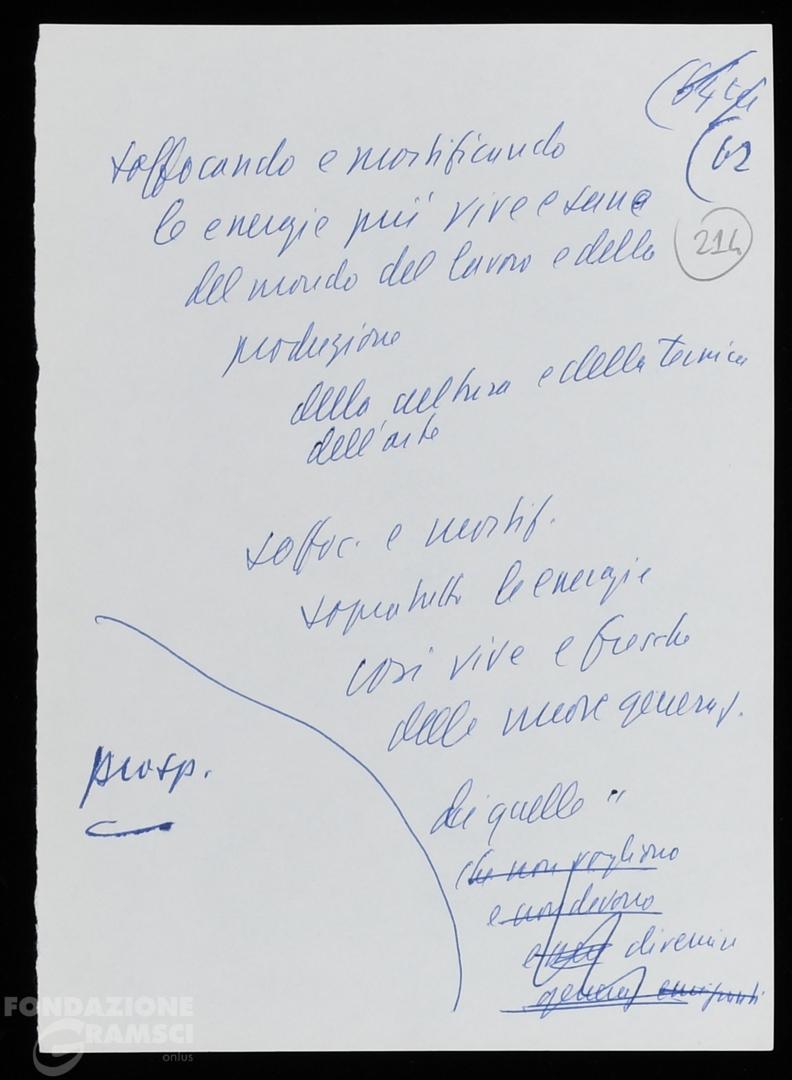 (62
214
soffocando e mortificando
le energie più vive e sane
del mondo del lavoro e della
produzione
della cultura e della tecnica
dell'arte
soffoc. e mortif.
sopratutto le energie
così vive e fresche
delle nuove generaz.
di quelle "
che non vogliono
e non devono
e non divenire
generaz emigranti
prosp.
FONDAZIONE
GRAMSCI
onlus